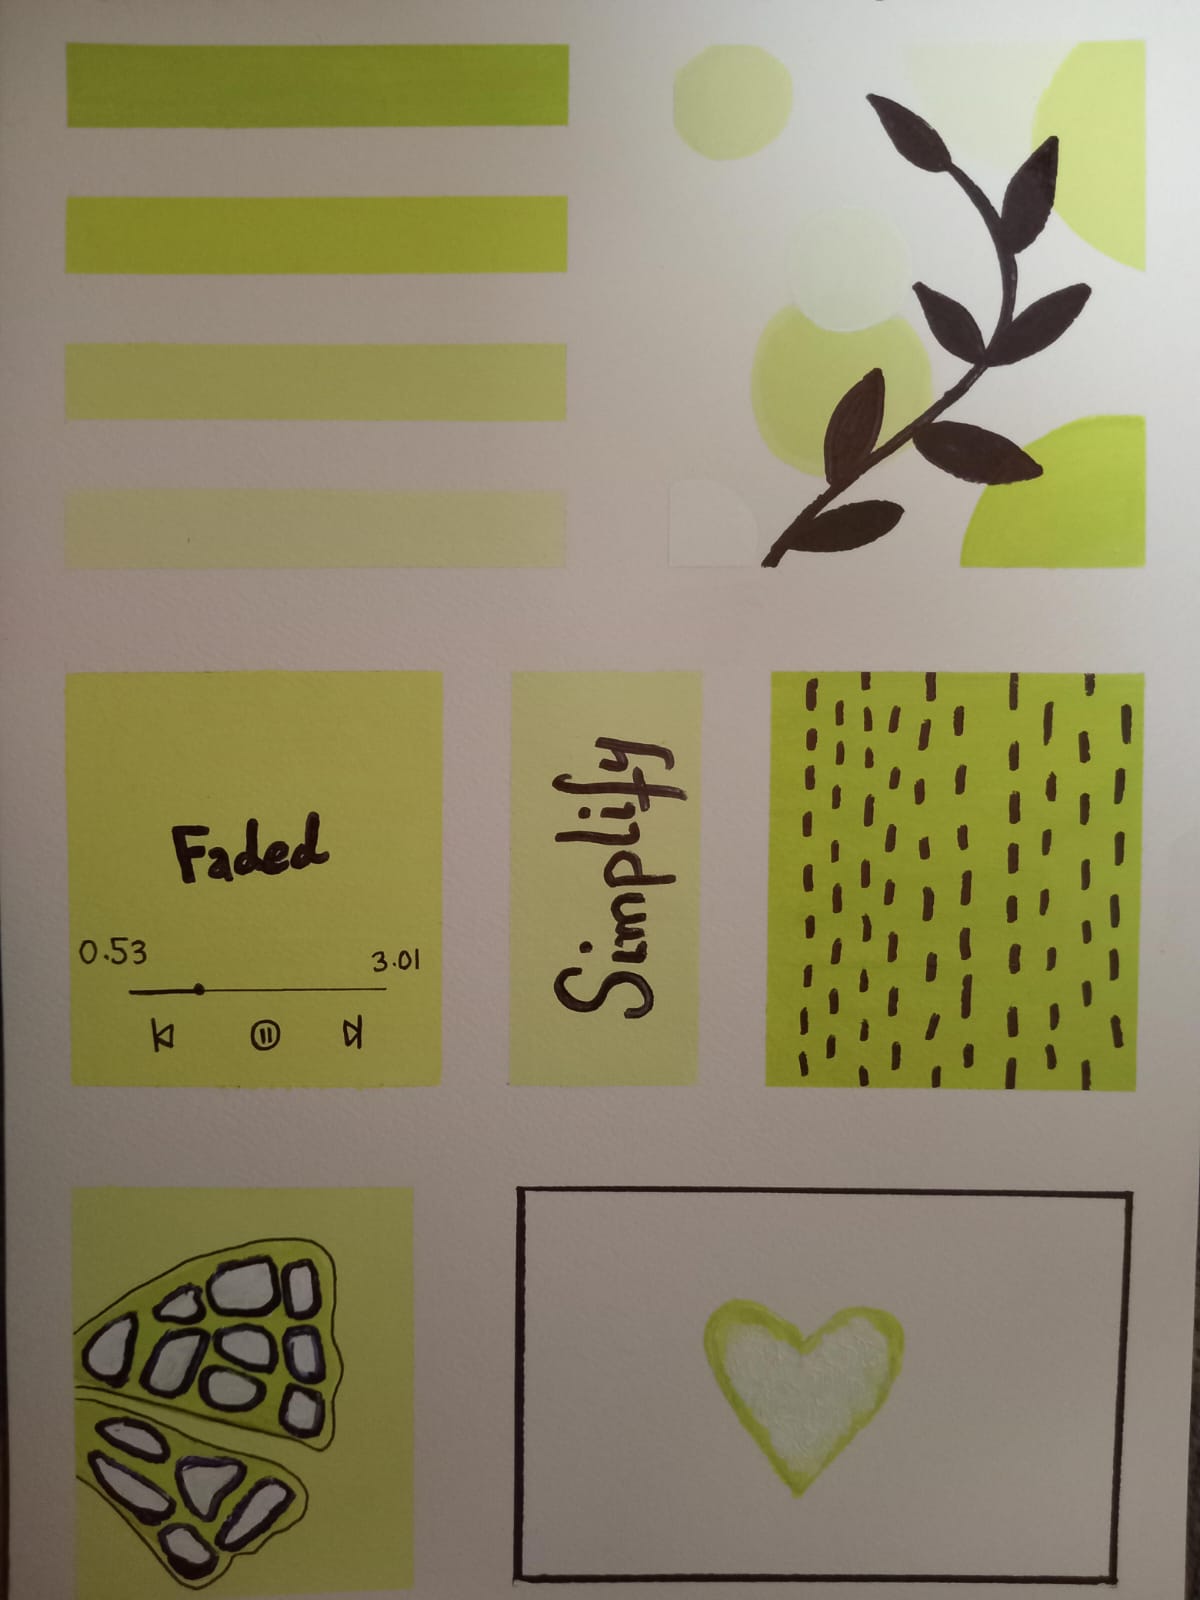 Faded
0.53 3.01
Simplify